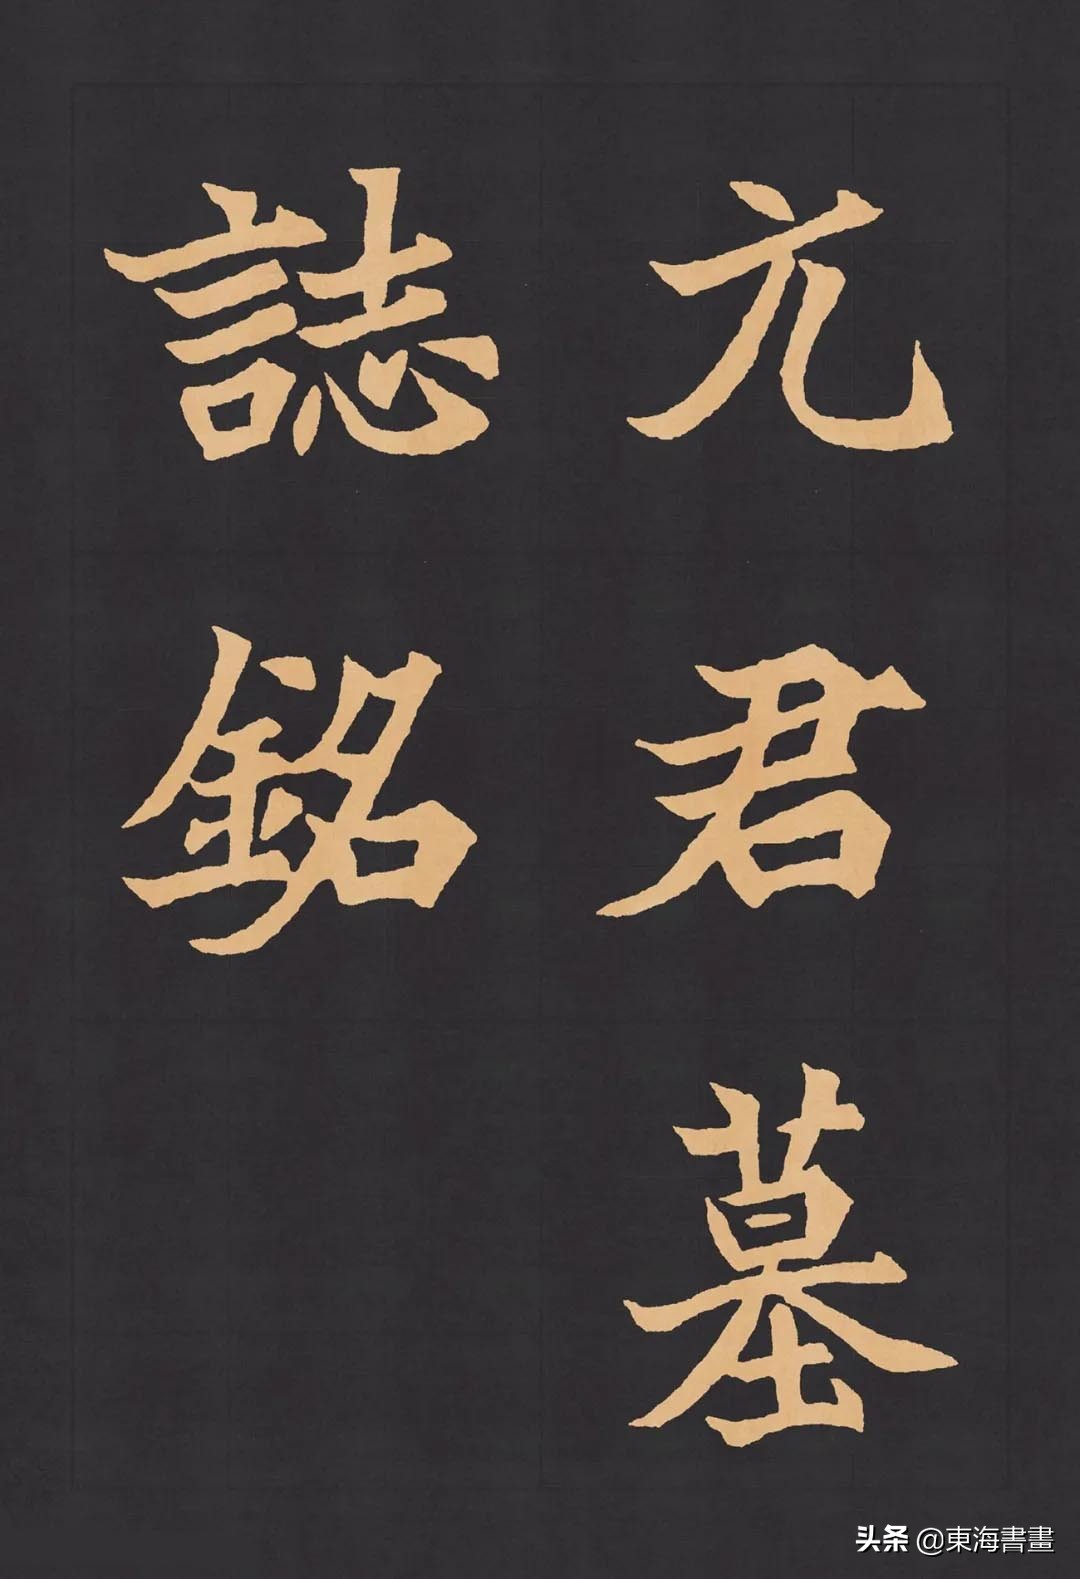 元君墓
誌銘
头条 @東海書畫